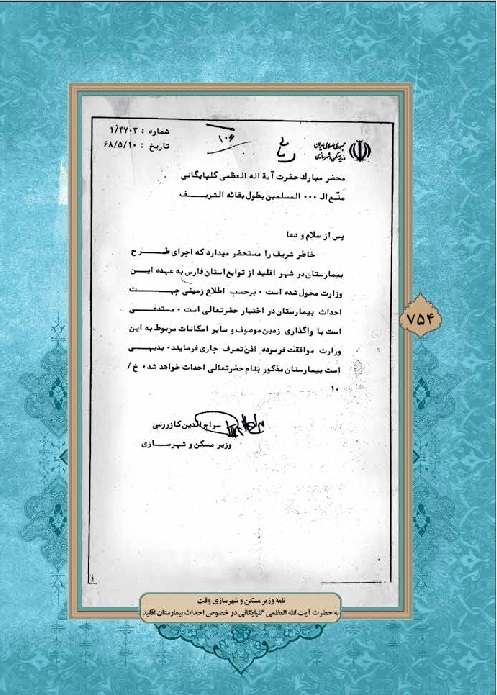 جمهوری اسلامی ایران
وزارت مسکن و شهرسازی
شماره : ۱/۴۷۰۳
تاریخ : ۶۸/۵/۱۰
۱۰۶
محضر مبارك حضرت آیة اله العظمی گلپایگانی
متّع الـ ۰۰۰ المسلمین بطول بقائه الشریـــف
پس از سلام و دعا
خاطر شریف را مستحضر میدارد که اجرای طــرح
بیمارستان در شهر اقلید از توابع استان فارس به عهده ایـن
وزارت محول شده است ۰ برحسب اطلاع زمینی جهــت
احداث بیمارستان در اختیار حضرتعالی است ۰ مستدعـی
است با واگذاری زمین موصوف و سایر امکانات مربوط به این
وزارت موافقت فرموده، اذن تصرف جاری فرمایند ۰ بدیهـی
است بیمارستان مذکور بنام حضرتعالی احداث خواهد شد۰ خ/
۱۰
سراج الدین کازرونی
وزیر مسکن و شهرسازی
۷۵۴
نامه وزیر مسکن و شهرسازی وقت
به حضرت آیت الله العظمی گلپایگانی در خصوص احداث بیمارستان اقلید